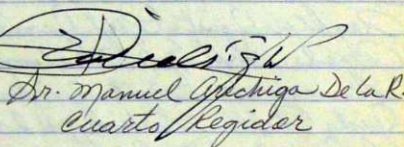 Dr. Manuel Arechiga De la R.
Cuarto Regidor